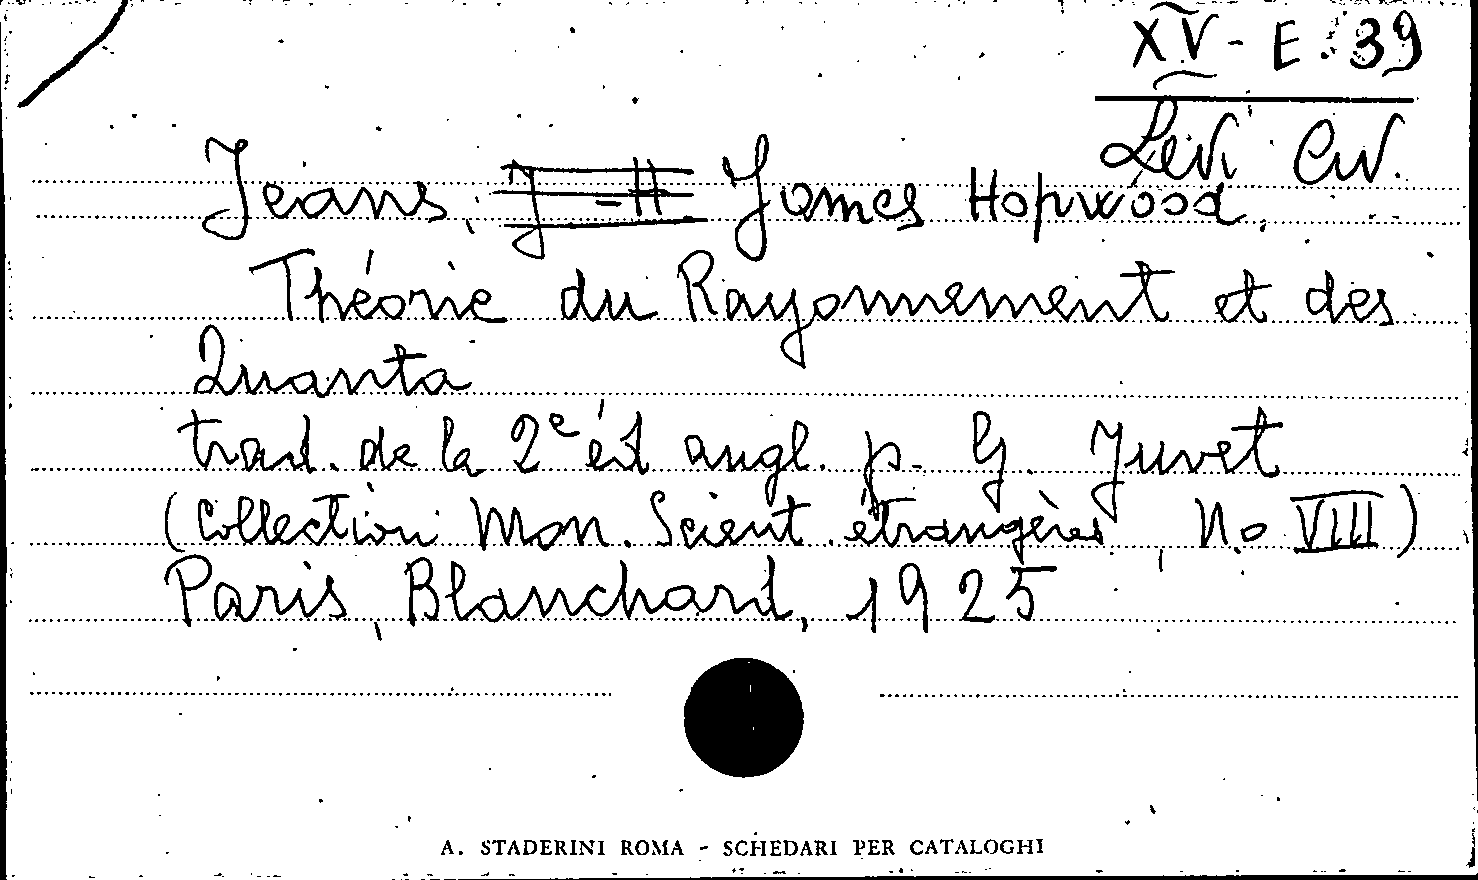 XV - E. 39
Levi Civ.
Jeans, J - H James Hopwood,
Théorie du Rayonnement et des
Quanta
trad. de la 2e éd angl. p. G. Juvet
(Collection Mon. Scient étrangères, No VIII)
Paris, Blanchard, 1925
A. STADERINI ROMA - SCHEDARI PER CATALOGHI